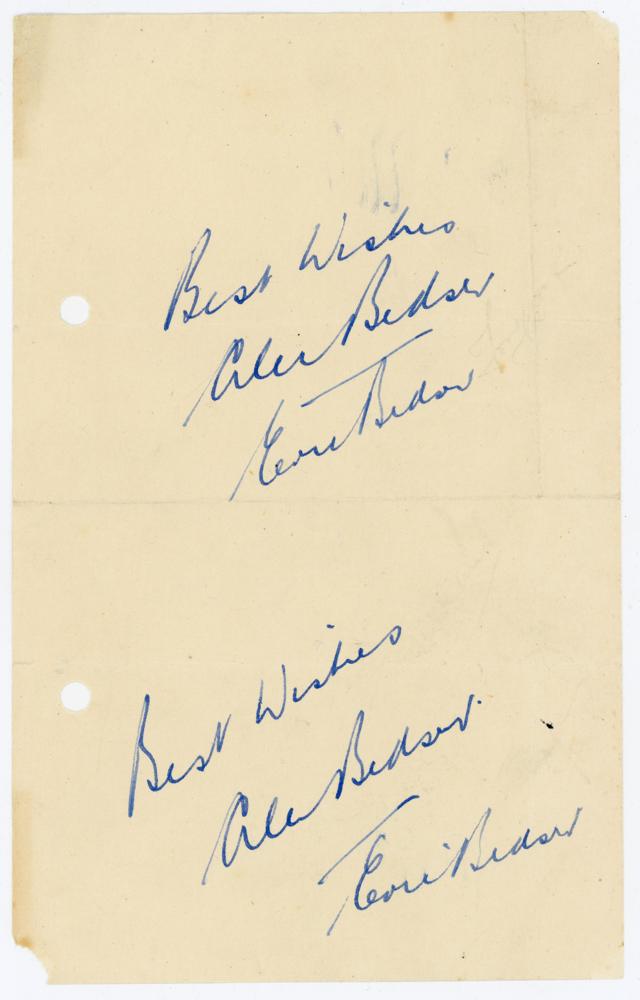 Best Wishes
Alec Bedser
Eric Bedser
Best Wishes
Alec Bedser
Eric Bedser